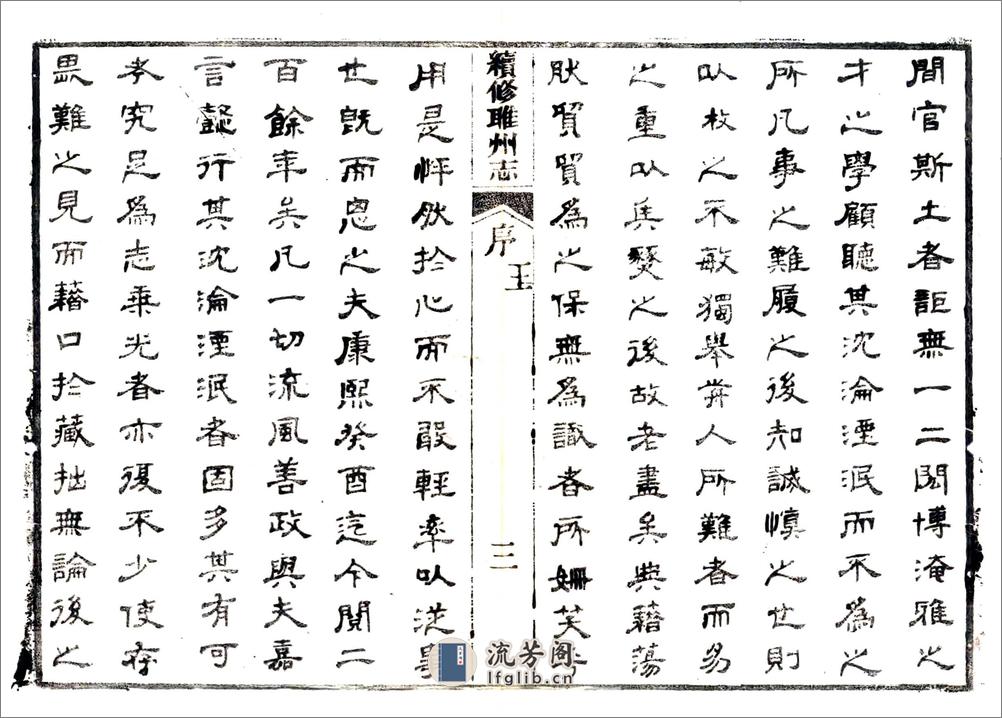 間官斯土者詎無一二閎博淹雅之
才之學顧聽其沈淪湮泯而不為之
所凡事之難履之後知誠慎之世則
以枚之不敏獨舉前人所難者而易
之重以兵燹之後故老盡矣典籍蕩
肰貿貿為之保無為識者所姍笑乎
續修睢州志
序
王
三
用是怦肰於心而不敢輕率以從事
世既而思之夫康熙癸酉迄今閱二
百餘年矣凡一切流風善政與夫嘉
言懿行其沈淪湮泯者固多其有可
考究足為志乘光者亦復不少使存
畏難之見而藉口於藏拙無論後之
流芳阁
lfglib.cn